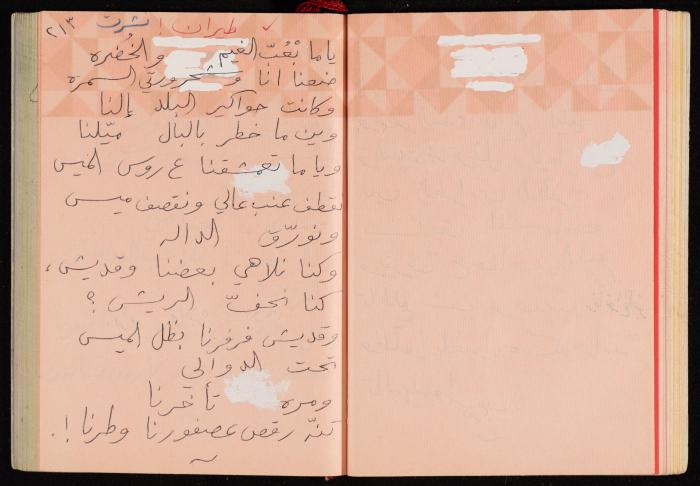 ٢١٣ طيران! نشرت ✓
ياما بْعُبّ الغيم والخُضره
ضعنا انا وشحرورتي السمره
وكانت حواكير البلد إلنا
وين ما خطر بالبال ميّلنا
وياما تعمشقنا ع روس الميس
نقطف عنب عالي ونقصف ميس
ونورّق الداله
وكنا نلاهي بعضنا وقديش،
كنا نحفّ الريش؟
وقديش فرفرنا بظل الميس
تحت الدوالي
ومره تأخرنا
تنّه رقص عصفورنا وطرنا!.